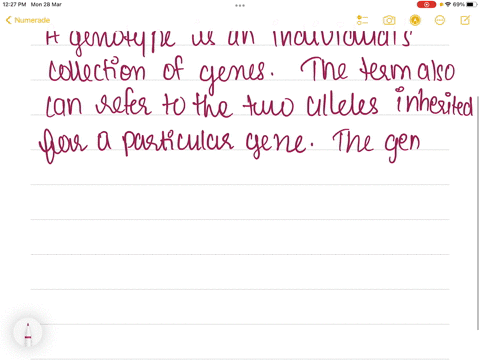 12:27 PM Mon 28 Mar
69%
Numerade
A genotype is an individual's
collection of genes. The term also
can refer to the two alleles inherited
for a particular gene. The gen